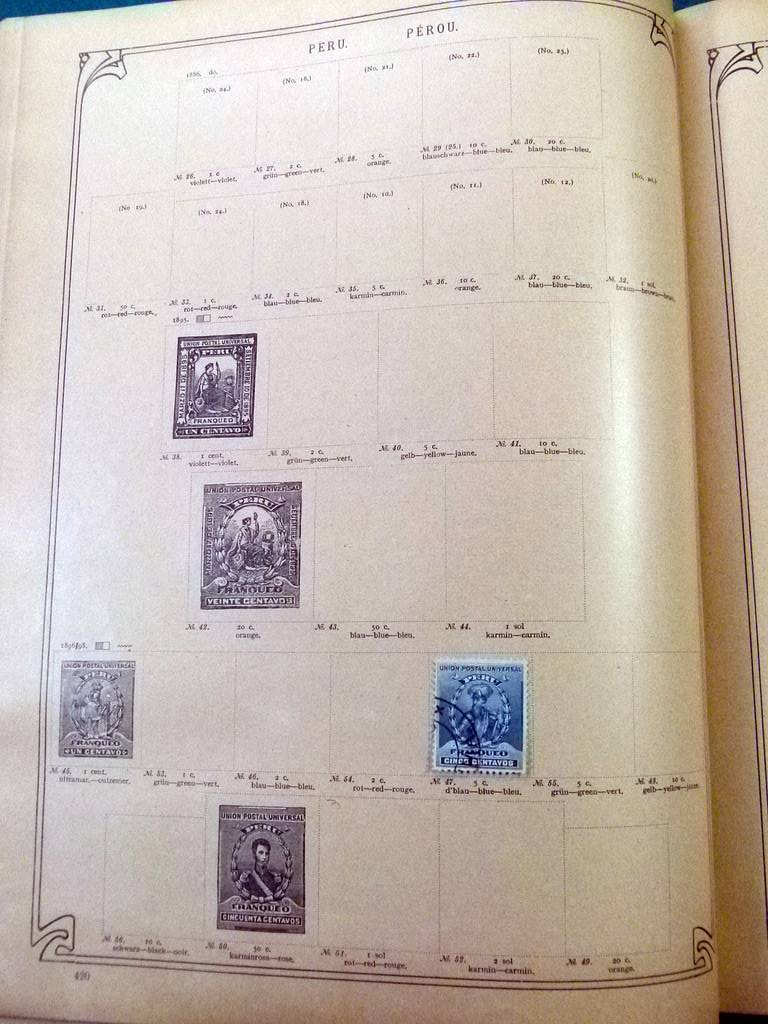 PERU. PÉROU.
1886. do.
(No. 24.) (No. 18.) (No. 21.) (No. 22.) (No. 23.)
№. 26. 1 c №. 27. 2 c. №. 28. 5 c. №. 29 (25.) 10 c. №. 30. 20 c.
violett—violet. grün—green—vert. orange. blauschwarz—blue—bleu. blau—blue—bleu.
(No 19.) (No. 24.) (No. 18.) (No. 10.) (No. 11.) (No. 12.)
№. 31. 50 c. №. 33. 1 c. №. 34. 2 c. №. 35. 5 c. №. 36. 10 c. №. 37. 20 c. №. 32. 1 sol
rot—red—rouge. rot—red—rouge. blau—blue—bleu. karmin—carmin. orange. blau—blue—bleu. braun—brown—brun.
1895.
UNION POSTAL UNIVERSAL
PERU
FRANQUEO
UN CENTAVO
№. 38. 1 cent. №. 39. 2 c. №. 40. 5 c. №. 41. 10 c.
violett—violet. grün—green—vert. gelb—yellow—jaune. blau—blue—bleu.
UNION POSTAL UNIVERSAL
PERU
FRANQUEO
VEINTE CENTAVOS
№. 42. 20 c. №. 43. 50 c. №. 44. 1 sol
orange. blau—blue—bleu. karmin—carmin.
1896/98.
UNION POSTAL UNIVERSAL
PERU
FRANQUEO
UN CENTAVOS
UNION POSTAL UNIVERSAL
PERU
FRANQUEO
CINCO CENTAVOS
№. 45. 1 cent. №. 53. 1 c. №. 46. 2 c. №. 54. 2 c. №. 47. 5 c. №. 55. 5 c. №. 48. 10 c.
ultramar.—outremer. grün—green—vert. blau—blue—bleu. rot—red—rouge. d'blau—blue—bleu. grün—green—vert. gelb—yellow—jaune
UNION POSTAL UNIVERSAL
PERU
FRANQUEO
CINCUENTA CENTAVOS
№. 56. 10 c. №. 50. 50 c. №. 51. 1 sol №. 52. 2 sol №. 49. 20 c.
schwarz—black—noir. karminrosa—rose. rot—red—rouge. karmin—carmin. orange.
420